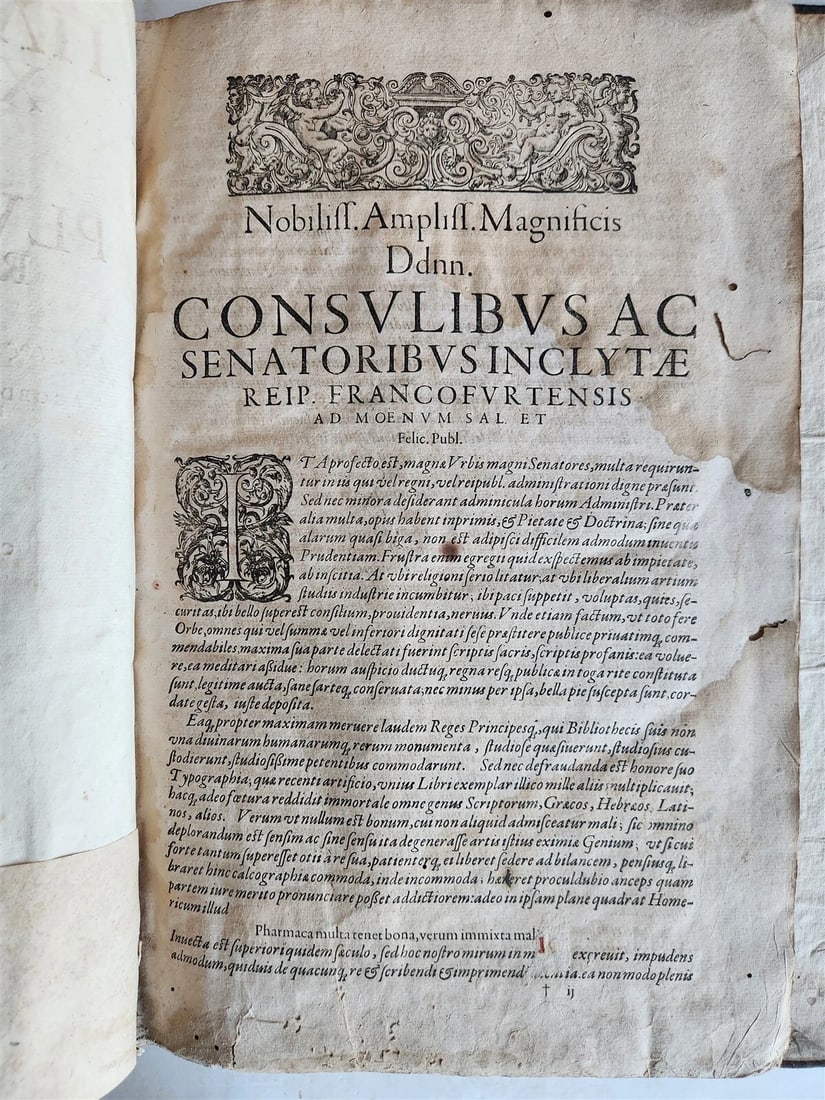 Nobiliſſ. Ampliſſ. Magnificis
Ddnn.
CONSVLIBVS AC
SENATORIBVS INCLYTÆ
REIP. FRANCOFVRTENSIS
AD MOENVM SAL. ET
Felic. Publ.
ITA profecto est, magnæ Vrbis magni Senatores, multa requirun-
tur in iis qui vel regni, vel reipubl. administrationi digne præsunt.
Sed nec minora desiderant adminicula horum Administri. Præter
alia multa, opus habent inprimis, & Pietate & Doctrina; ſine quarum
alarum quasi biga, non est adipisci difficilem admodum inuentu
Prudentiam. Frustra enim egregii quid exſpectemus ab impietate,
ab inſcitia. At vbi religioni ſerio litatur, at vbi liberalium artium
ſtudiis industrie incumbitur; ibi paci ſuppetit, voluptas, quies, ſe-
curitas, ibi bello ſuperest conſilium, prouidentia, neruus. Vnde etiam factum, vt toto fere
Orbe, omnes qui vel ſummæ vel inferiori dignitati ſeſe præſtitere publice priuatimq́, com-
mendabiles, maxima ſua parte delectati fuerint ſcriptis ſacris, ſcriptis profanis: ea volue-
re, ea meditari aßidue: horum auſpicio ductuq́, regna resq́, publicæ in toga rite conſtituta
ſunt, legitime aucta, ſane ſarteq́, conſeruata; nec minus per ipſa, bella pie ſuscepta ſunt, cor-
date geſta, iuſte depoſita.
Eaq́, propter maximam meruere laudem Reges Principesq́, qui Bibliothecis ſuis non
vna diuinarum humanarumq́, rerum monumenta, ſtudioſe quæſiuerunt, ſtudioſius cu-
ſtodierunt, ſtudioſißime petentibus commodarunt. Sed nec defraudanda est honore ſuo
Typographia; quæ recenti artificio, vnius Libri exemplar illico mille aliis multiplicauit;
hacq́, adeo fœtura reddidit immortale omne genus Scriptorum, Græcos, Hebræos, Lati-
nos, alios. Verum vt nullum est bonum, cui non aliquid admiſceatur mali; ſic omnino
deplorandum est ſenſim ac ſine ſenſu ita degeneraſſe artis istius eximiæ Genium; vt ſi cui
forte tantum ſupereſſet otii à re ſua, patienterq́, ei liberet ſedere ad bilancem, penſiusq́, li-
braret hinc calcographiæ commoda, inde incommoda; hæreret proculdubio anceps quam
partem iure merito pronunciare poßet addictiorem: adeo in ipſam plane quadrat Home-
ricum illud
Pharmaca multa tenet bona, verum immixta mal
Inuecta est ſuperiori quidem ſæculo, ſed hoc nostro mirum in m excreuit, impudens
admodum, quiduis de quacunq́, re & ſcribendi & imprimend ea non modo plenis
† ij